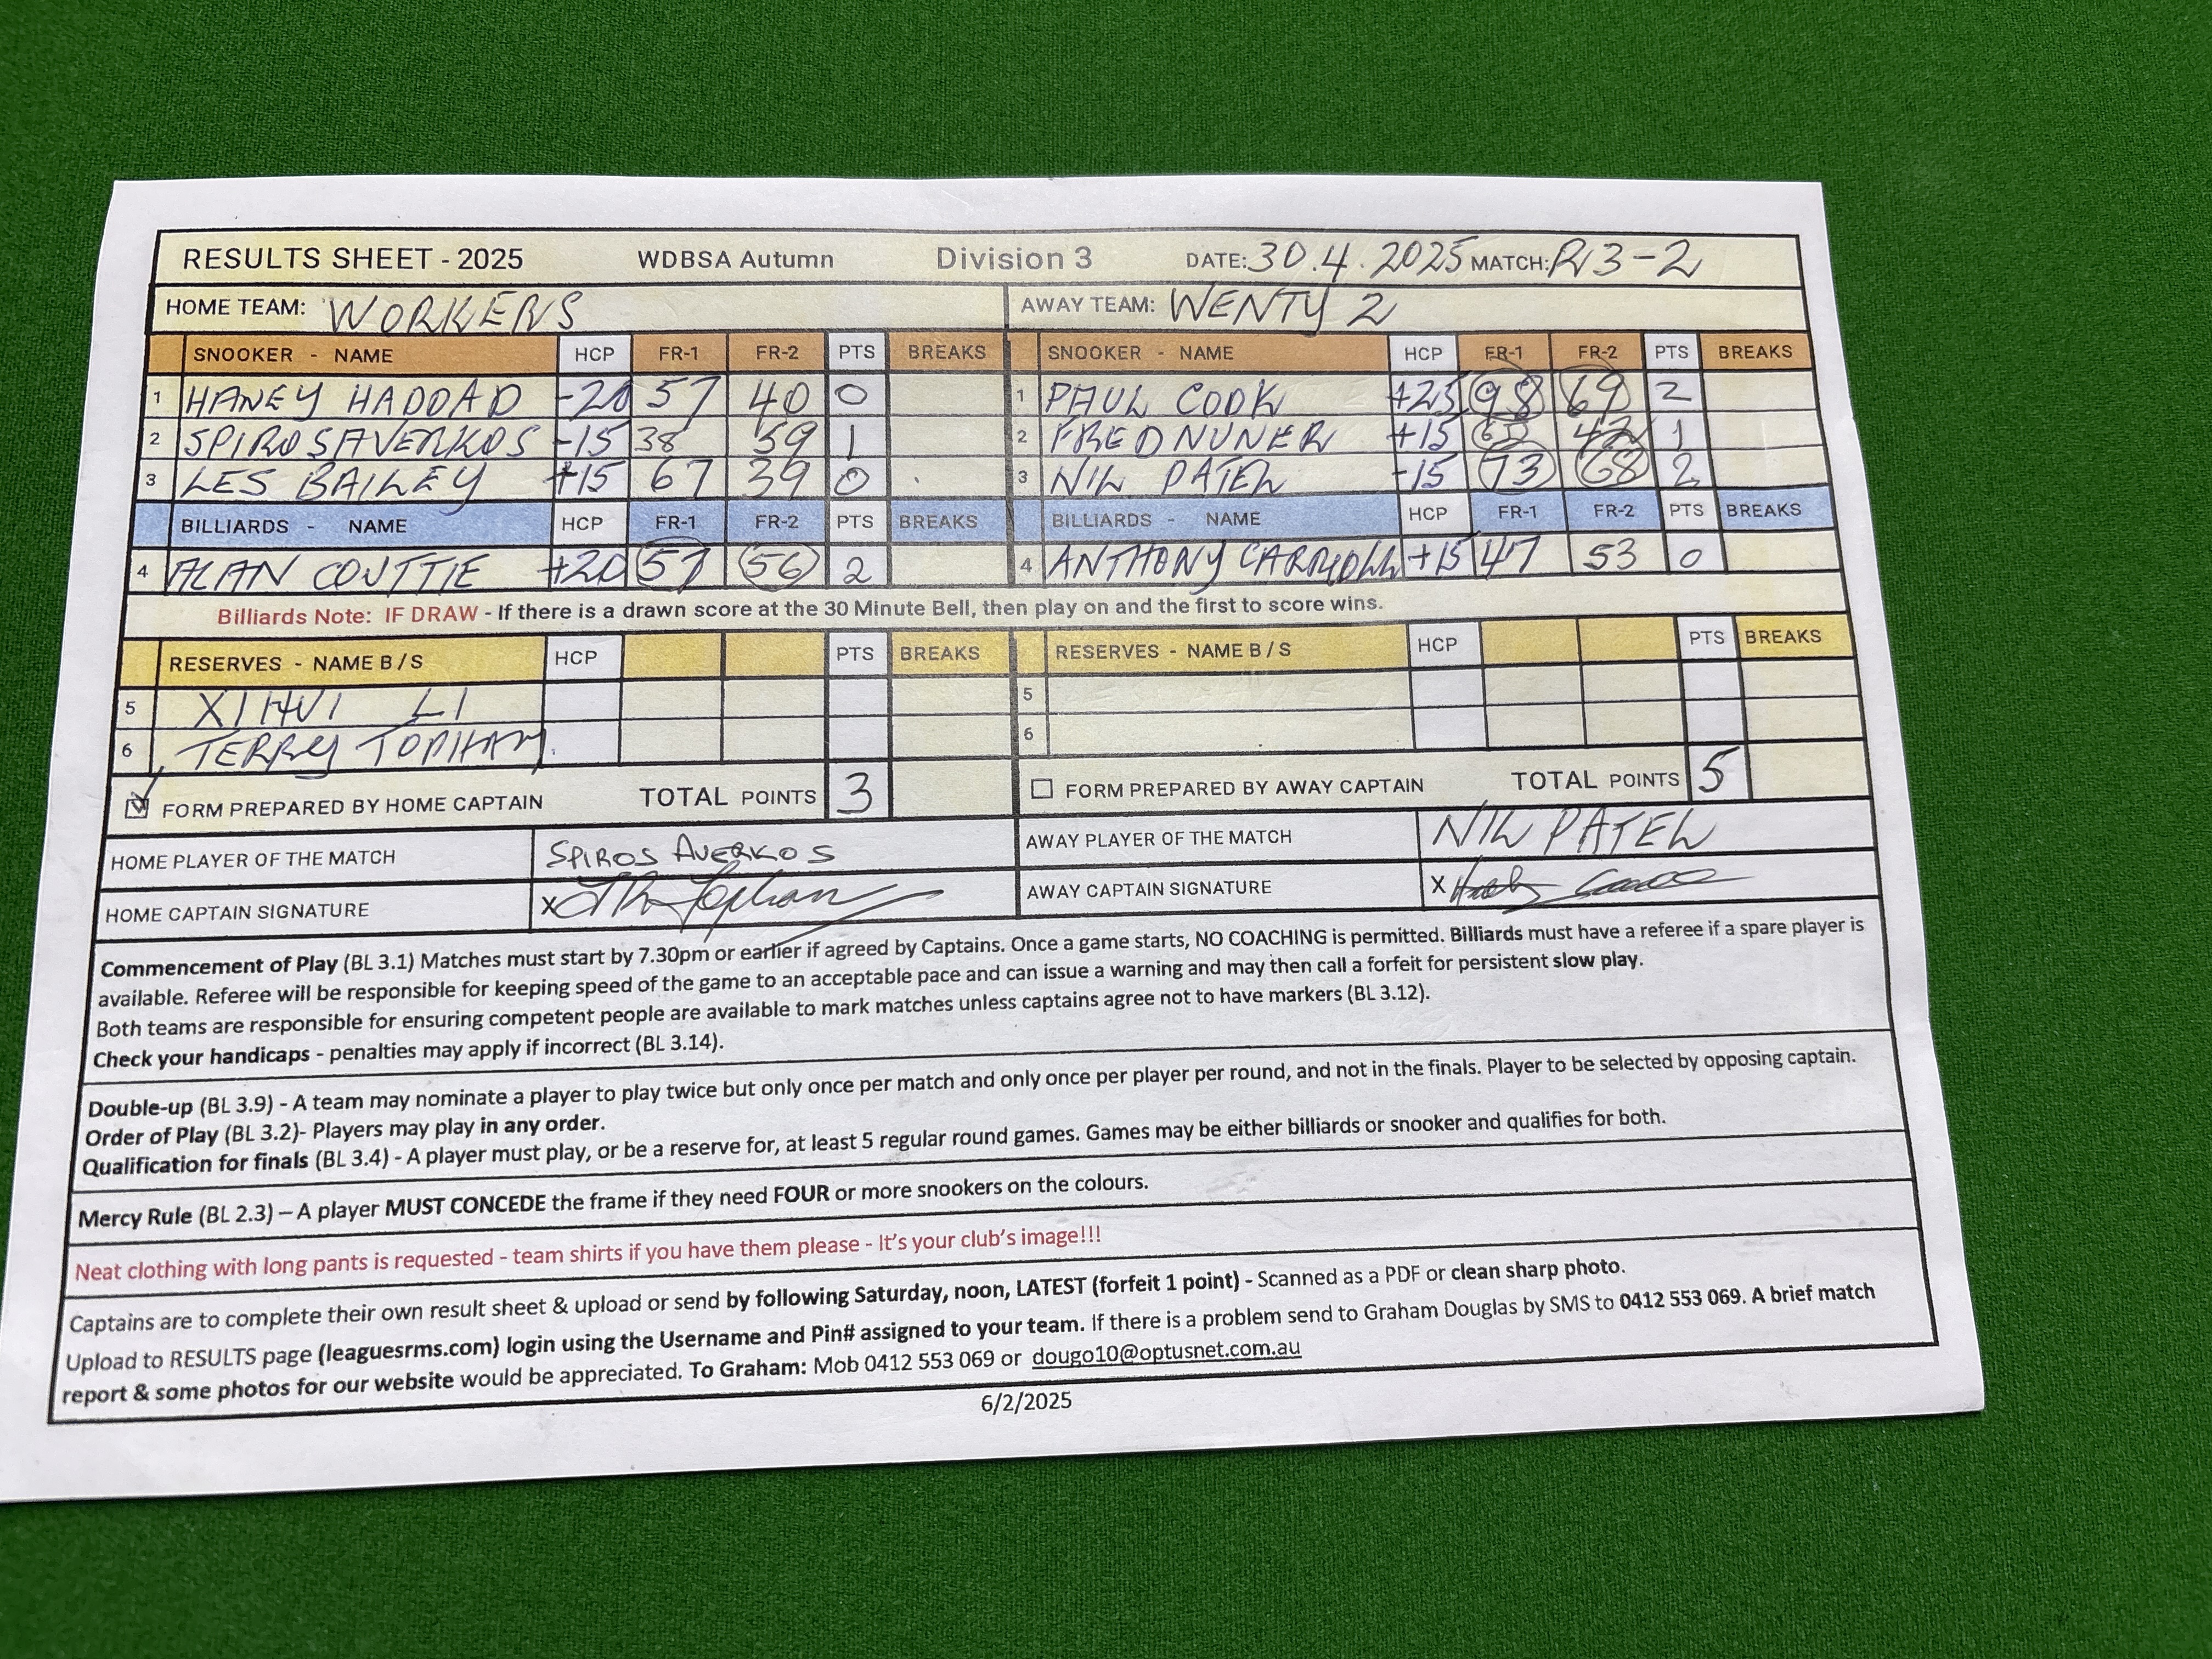 RESULTS SHEET - 2025 WDBSA Autumn Division 3 DATE: 30.4.2025 MATCH: R13-2
HOME TEAM: WORKERS AWAY TEAM: WENTY 2
SNOOKER - NAME HCP FR-1 FR-2 PTS BREAKS SNOOKER - NAME HCP FR-1 FR-2 PTS BREAKS
1 HANEY HADDAD -20 57 40 0 1 PAUL COOK +25 98 69 2
2 SPIROS AVERKOS -15 38 59 1 2 FRED NUNER +15 42 1
3 LES BAILEY +15 67 39 0 3 NIL PATEL -15 73 68 2
BILLIARDS - NAME HCP FR-1 FR-2 PTS BREAKS BILLIARDS - NAME HCP FR-1 FR-2 PTS BREAKS
4 ALAN COUTTIE +20 57 56 2 4 ANTHONY +15 47 53 0
Billiards Note: IF DRAW - If there is a drawn score at the 30 Minute Bell, then play on and the first to score wins.
RESERVES - NAME B / S HCP PTS BREAKS RESERVES - NAME B / S HCP PTS BREAKS
5 XIHUI LI 5
6 TERRY TOPHAM 6
FORM PREPARED BY HOME CAPTAIN TOTAL POINTS 3 FORM PREPARED BY AWAY CAPTAIN TOTAL POINTS 5
HOME PLAYER OF THE MATCH SPIROS AVERKOS AWAY PLAYER OF THE MATCH NIL PATEL
HOME CAPTAIN SIGNATURE X AWAY CAPTAIN SIGNATURE X
Commencement of Play (BL 3.1) Matches must start by 7.30pm or earlier if agreed by Captains. Once a game starts, NO COACHING is permitted. Billiards must have a referee if a spare player is
available. Referee will be responsible for keeping speed of the game to an acceptable pace and can issue a warning and may then call a forfeit for persistent slow play.
Both teams are responsible for ensuring competent people are available to mark matches unless captains agree not to have markers (BL 3.12).
Check your handicaps - penalties may apply if incorrect (BL 3.14).
Double-up (BL 3.9) - A team may nominate a player to play twice but only once per match and only once per player per round, and not in the finals. Player to be selected by opposing captain.
Order of Play (BL 3.2)- Players may play in any order.
Qualification for finals (BL 3.4) - A player must play, or be a reserve for, at least 5 regular round games. Games may be either billiards or snooker and qualifies for both.
Mercy Rule (BL 2.3) – A player MUST CONCEDE the frame if they need FOUR or more snookers on the colours.
Neat clothing with long pants is requested - team shirts if you have them please - It's your club's image!!!
Captains are to complete their own result sheet & upload or send by following Saturday, noon, LATEST (forfeit 1 point) - Scanned as a PDF or clean sharp photo.
Upload to RESULTS page (leaguesrms.com) login using the Username and Pin# assigned to your team. If there is a problem send to Graham Douglas by SMS to 0412 553 069. A brief match
report & some photos for our website would be appreciated. To Graham: Mob 0412 553 069 or dougo10@optusnet.com.au
6/2/2025